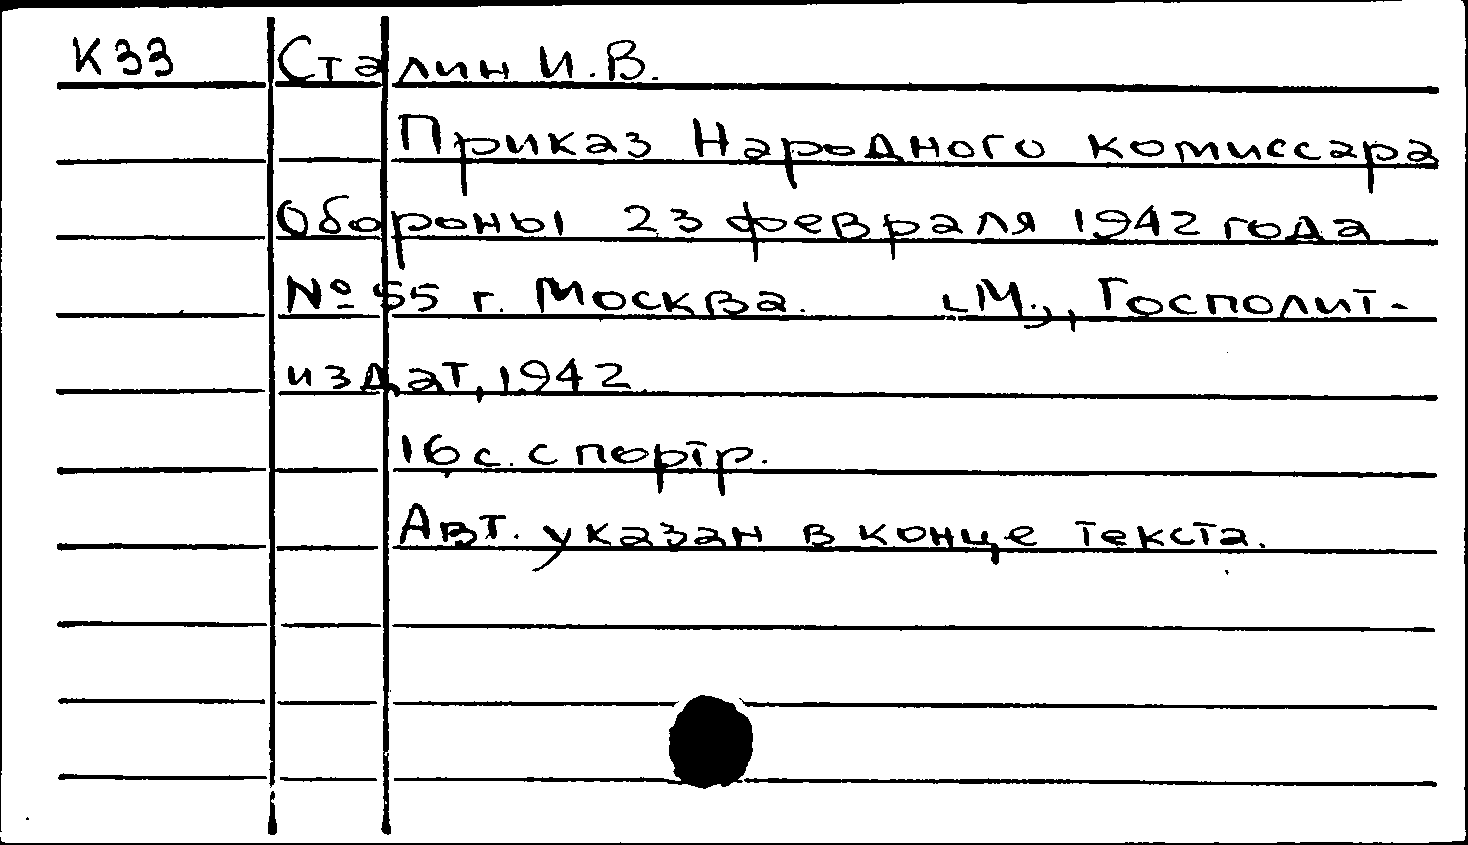 К33 Сталин И.В.
Приказ Народного комиссара
Обороны 23 февраля 1942 года
№ 55 г. Москва. [М.], Госполит-
издат, 1942
16 с. с портр.
Авт. указан в конце текста.